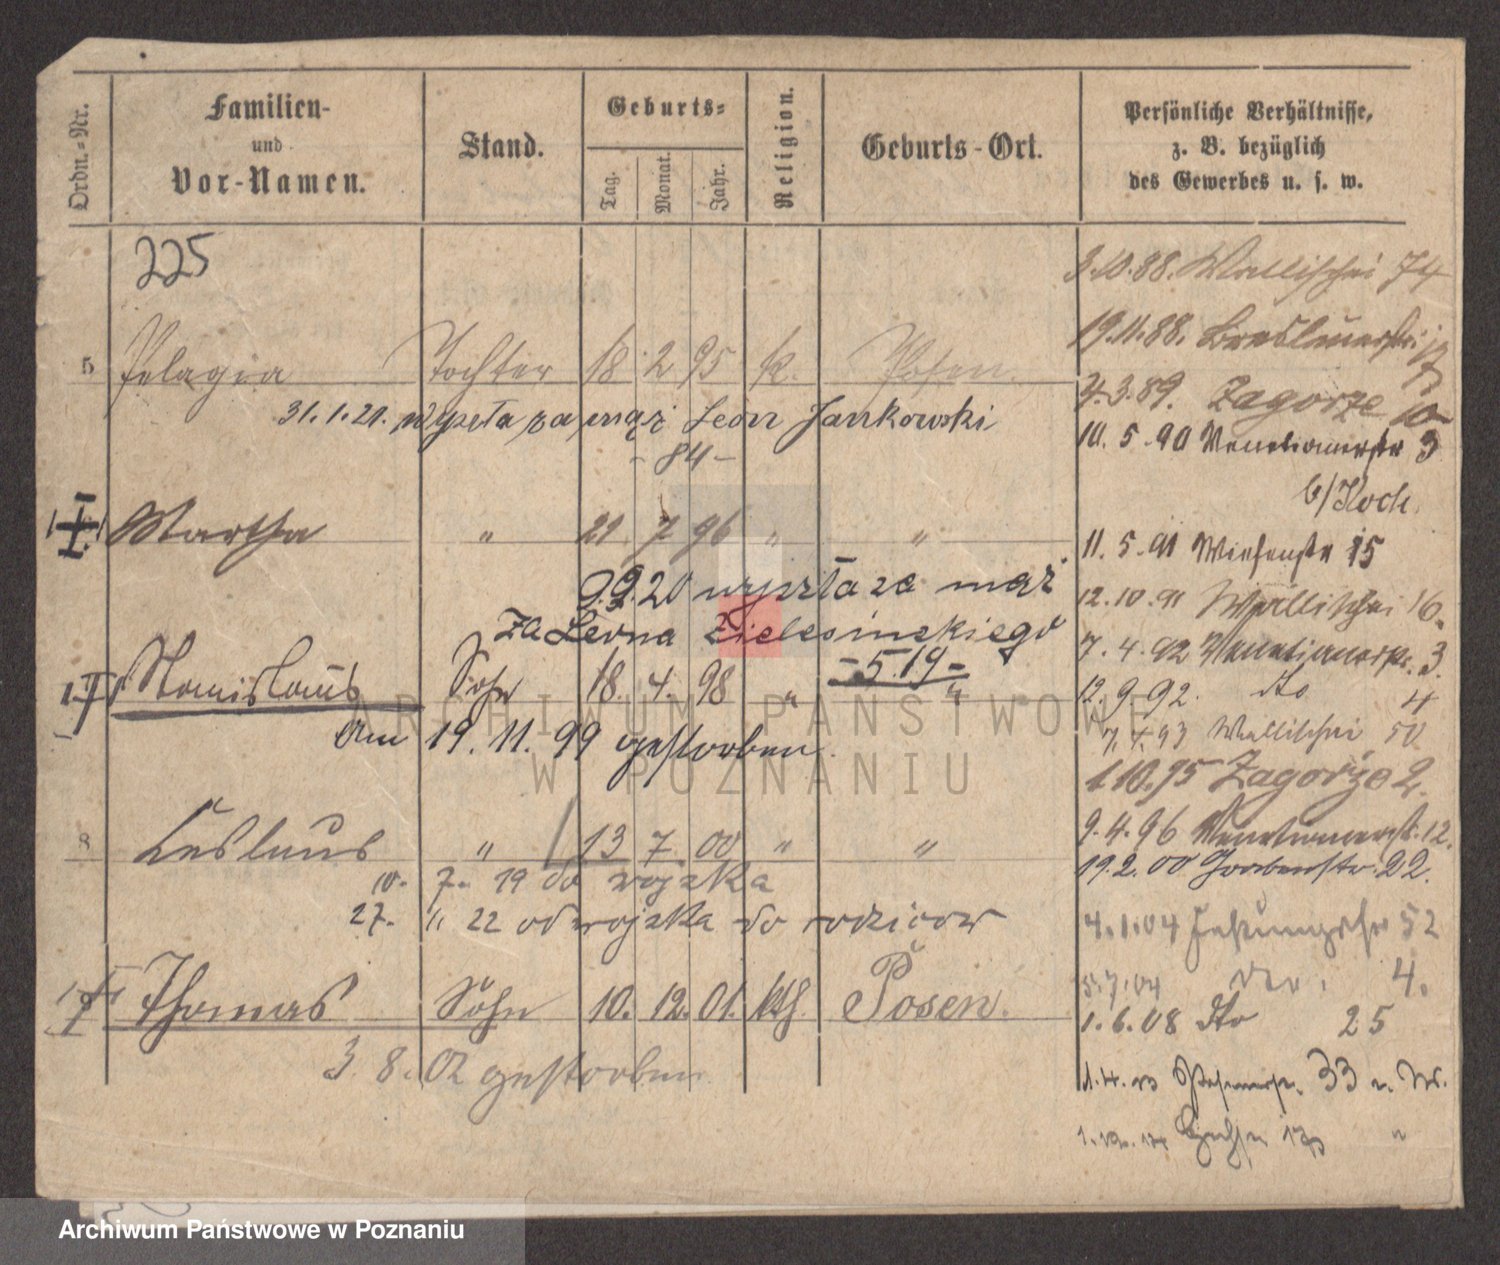 Ordn.-Nr.
Familien-
und
Vor-Namen.
Stand.
Geburts-
Tag.
Monat.
Jahr.
Religion.
Geburts-Ort.
Persönliche Verhältnisse,
z. B. bezüglich
des Gewerbes u. s. w.
225
3.10.88. Wallischei 74
19.11.88. Breslauerstr.
5 Pelagia Tochter 18 2 95 k. Posen.
3.89. Zagorze 10
31.1.21. wyszła za mąż Leon Jankowski
- 84 -
10. 5. 90 Venetianerstr 3
b/Koch.
Martha " 21. 7 96 " "
11. 5. 91 Wiesenstr 15
9.9.20 wyszła za mąż
12.10.91 Wallischei 16.
za Leona Zielesinskiego
- 519 -
7. 4. 92 Venetianerstr. 3.
Stanislaus Sohn 18. 4. 98 " "
12. 9. 92. dto 4
Am 19. 11. 99 gestorben.
7. 4. 93 Wallischei 50
1.10.95 Zagorze 2.
9. 4. 96 Venetianerstr. 12.
8 Ceslaus " 13 7. 00 " "
19.2. 00 Grabenstr. 22.
10. 7. 19 do wojska
27. " 22 od wojska do rodziców
4.1.04 52
7.04 dto. 4.
Thomas Sohn 10. 12. 01. kth. Posen.
1. 6. 08 dto 25
3. 8. 02 gestorben.
33
ARCHIWUM PAŃSTWOWE
W POZNANIU
Archiwum Państwowe w Poznaniu